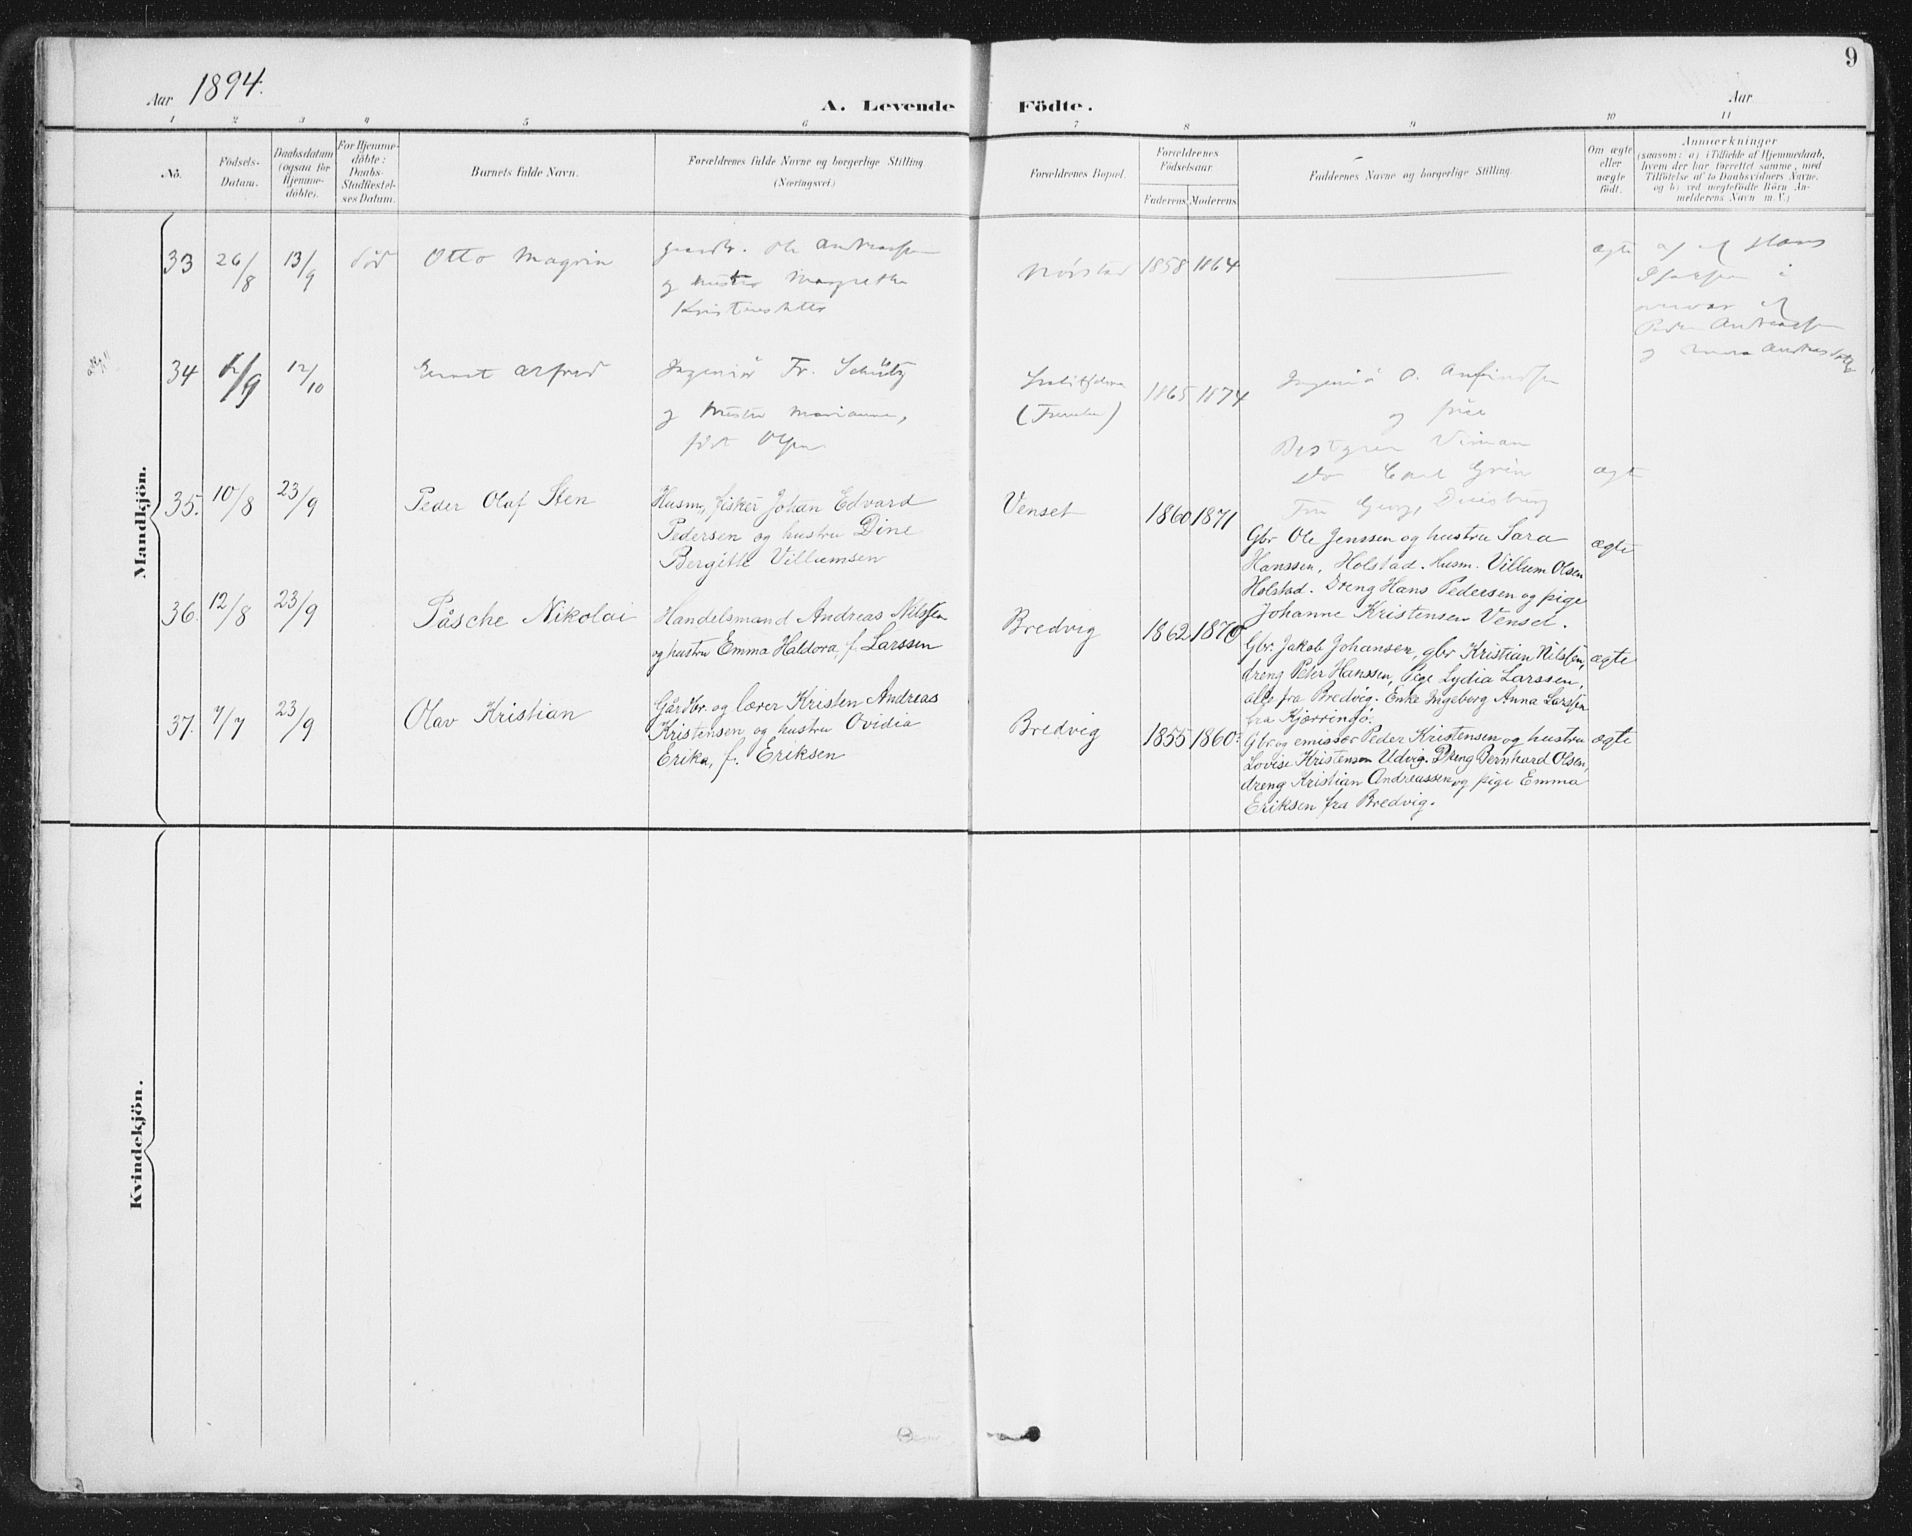 9
Aar 1894.
A. Levende Födte.
Aar
1 2 3 4 5 6 7 8 9 10 11
No.
Födsels-
Datum.
Daabsdatum
(ogsaa for
Hjemme-
döbte).
For Hjemme-
döbte:
Daabs-
Stadfæstel-
ses Datum.
Barnets fulde Navn.
Forældrenes fulde Navne og borgerlige Stilling
(Næringsvei)
Forældrenes Bopæl.
Forældrenes
Födselsaar.
Faderens
Moderens
Faddernes Navne og borgerlige Stilling.
Om ægte
eller
uægte
födt.
Anmærkninger
(saasom: a) i Tilfælde af Hjemmedaab,
hvem der har forrettet samme, med
Tilföielse af to Daabsvidners Navne,
og b) ved uegtefödte Börn An-
melderens Navn m. V.)
Mandkjön.
33 26/8 13/9 död
Otto Magvin
Ole Andreassen
og hustru Margrethe
Nörstad
1858 1864
ægte
af Hans
i
Peder Andreassen
og
34 12/9 12/10
Alfred
Ingeniör Fr. Schütz
og hustru Marianne,
födt Olsen
1865 1874
Ingeniör O.
og
Carl Grön
ægte
35. 10/8 23/9
Peder Olaf Sten
Husm, fisker Johan Edvard
Pedersen og hustru Dine
Bergitte Villumsen
Venset
1860 1871
Gbr Ole Jenssen og hustru Sara
Hanssen, Holstad. Husm. Villum Olsen
Holstad. Dreng Hans Pedersen og pige
Johanne Kristensen Venset.
ægte
36. 12/8 23/9
Påsche Nikolai
Handelsmand Andreas Nilssen
og hustru Emma Haldora, f. Larssen
Bredvig
1862 1870
Gbr. Jakob Johansen, gbr Kristian Nilssen,
dreng Peter Hanssen, Pige Lydia Larssen,
alle fra Bredvig. Enke Ingeborg Anna Larssen
fra Kjærringö.
ægte
37. 7/7 23/9
Olav Kristian
Gårdbr. og lærer Kristen Andreas
Kristensen og hustru Ovidia
Erika, f. Eriksen
Bredvig
1855 1860.
Gbr og emissær Peder Kristensen og hustru
Lovise Kristensen Udvig. Dreng Bernhard Olsen,
dreng Kristian Andreassen og pige Emma
Eriksen fra Bredvig.
ægte
Kvindekjön.